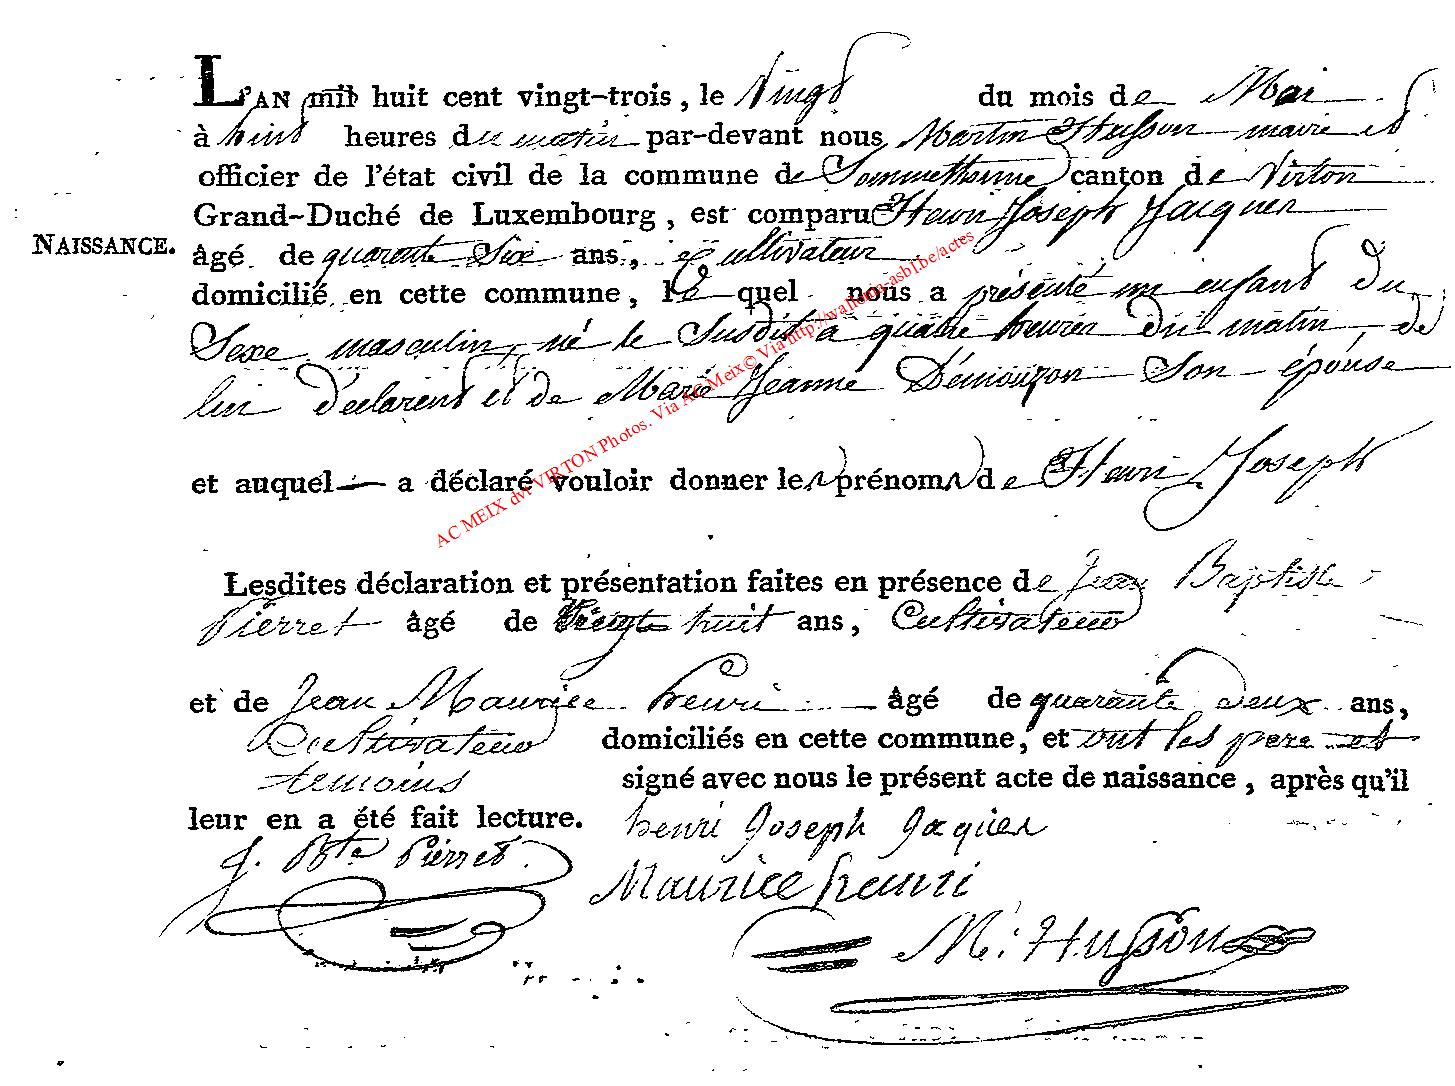 L'AN mil huit cent vingt-trois, le Vingt du mois de Mai
à huit heures du matin par-devant nous Martin Husson maire et
officier de l'état civil de la commune de Sommethonne canton de Virton
Grand-Duché de Luxembourg, est comparu Henri Joseph Jacquer
NAISSANCE. âgé de quarante Six ans, Cultivateur
domicilié en cette commune, lequel nous a présenté un enfant du
Sexe masculin, né le Susdit à quatre heures du matin, de
lui déclarent et de Marie Jeanne Démouzon Son épouse
et auquel a déclaré vouloir donner les prénoms de Henri Joseph
Lesdites déclaration et présentation faites en présence de Jean Baptiste
Pierret âgé de Vingt huit ans, Cultivateur
et de Jean Maurice henri âgé de quarante deux ans,
Cultivateur domiciliés en cette commune, et ont les pere et
temoins signé avec nous le présent acte de naissance, après qu'il
leur en a été fait lecture. henri Joseph Jaquier
J. Bte Pierret
Maurice henri
M: Husson
AC MEIX dvt VIRTON Photos. Via AC Meix© Via http://wallonia-asbl.be/actes